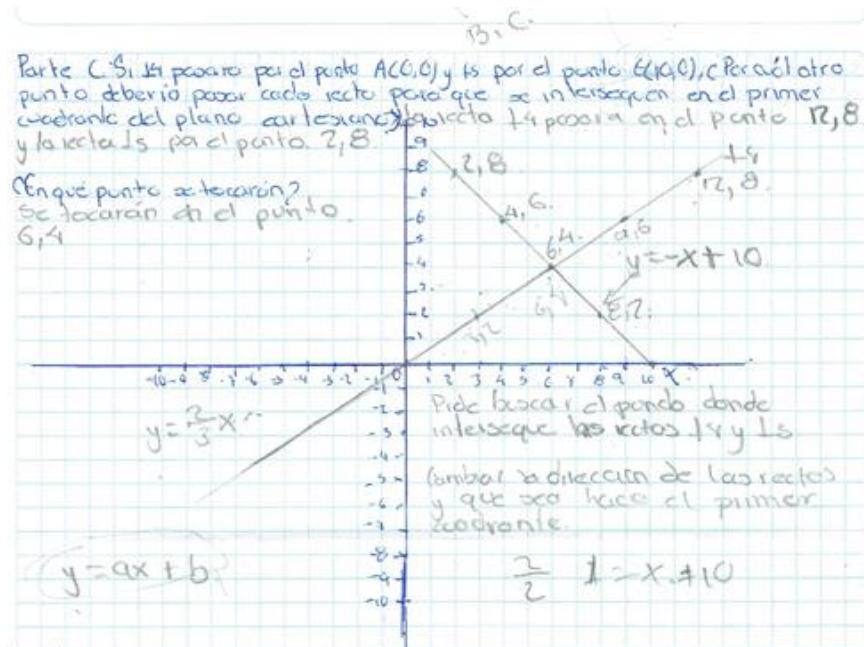 B, C.
Parte C. Si L4 pasara por el punto A(0,0) y L5 por el punto E(10,0), ¿Por cuál otro
punto debería pasar cada recta para que se intersequen en el primer
cuadrante del plano cartesiano? La recta L4 pasara en el punto 12,8
y la recta L5 por el punto 2,8
¿En qué punto se tocarán?
Se tocarán en el punto
6,4
9
8
6
5
4
3
2
1
2,8
4,6.
6,4.
9,6
L4
12,8.
y=-x+10
6,4
8,2.
3,2
-10 -9 8 -7 -6 -5 -4 -3 -2 -1 0 1 2 3 4 5 6 7 8 9 10 x
-1
-2
-3
-4
-5
-6
-7
-8
-9
-10
y=2/3x
Pide buscar el punto donde
interseque las rectas L4 y L5
Cambiar la dirección de las rectas
y que sea hacia el primer
cuadrante.
y=ax+b
2/2 1=-x+10